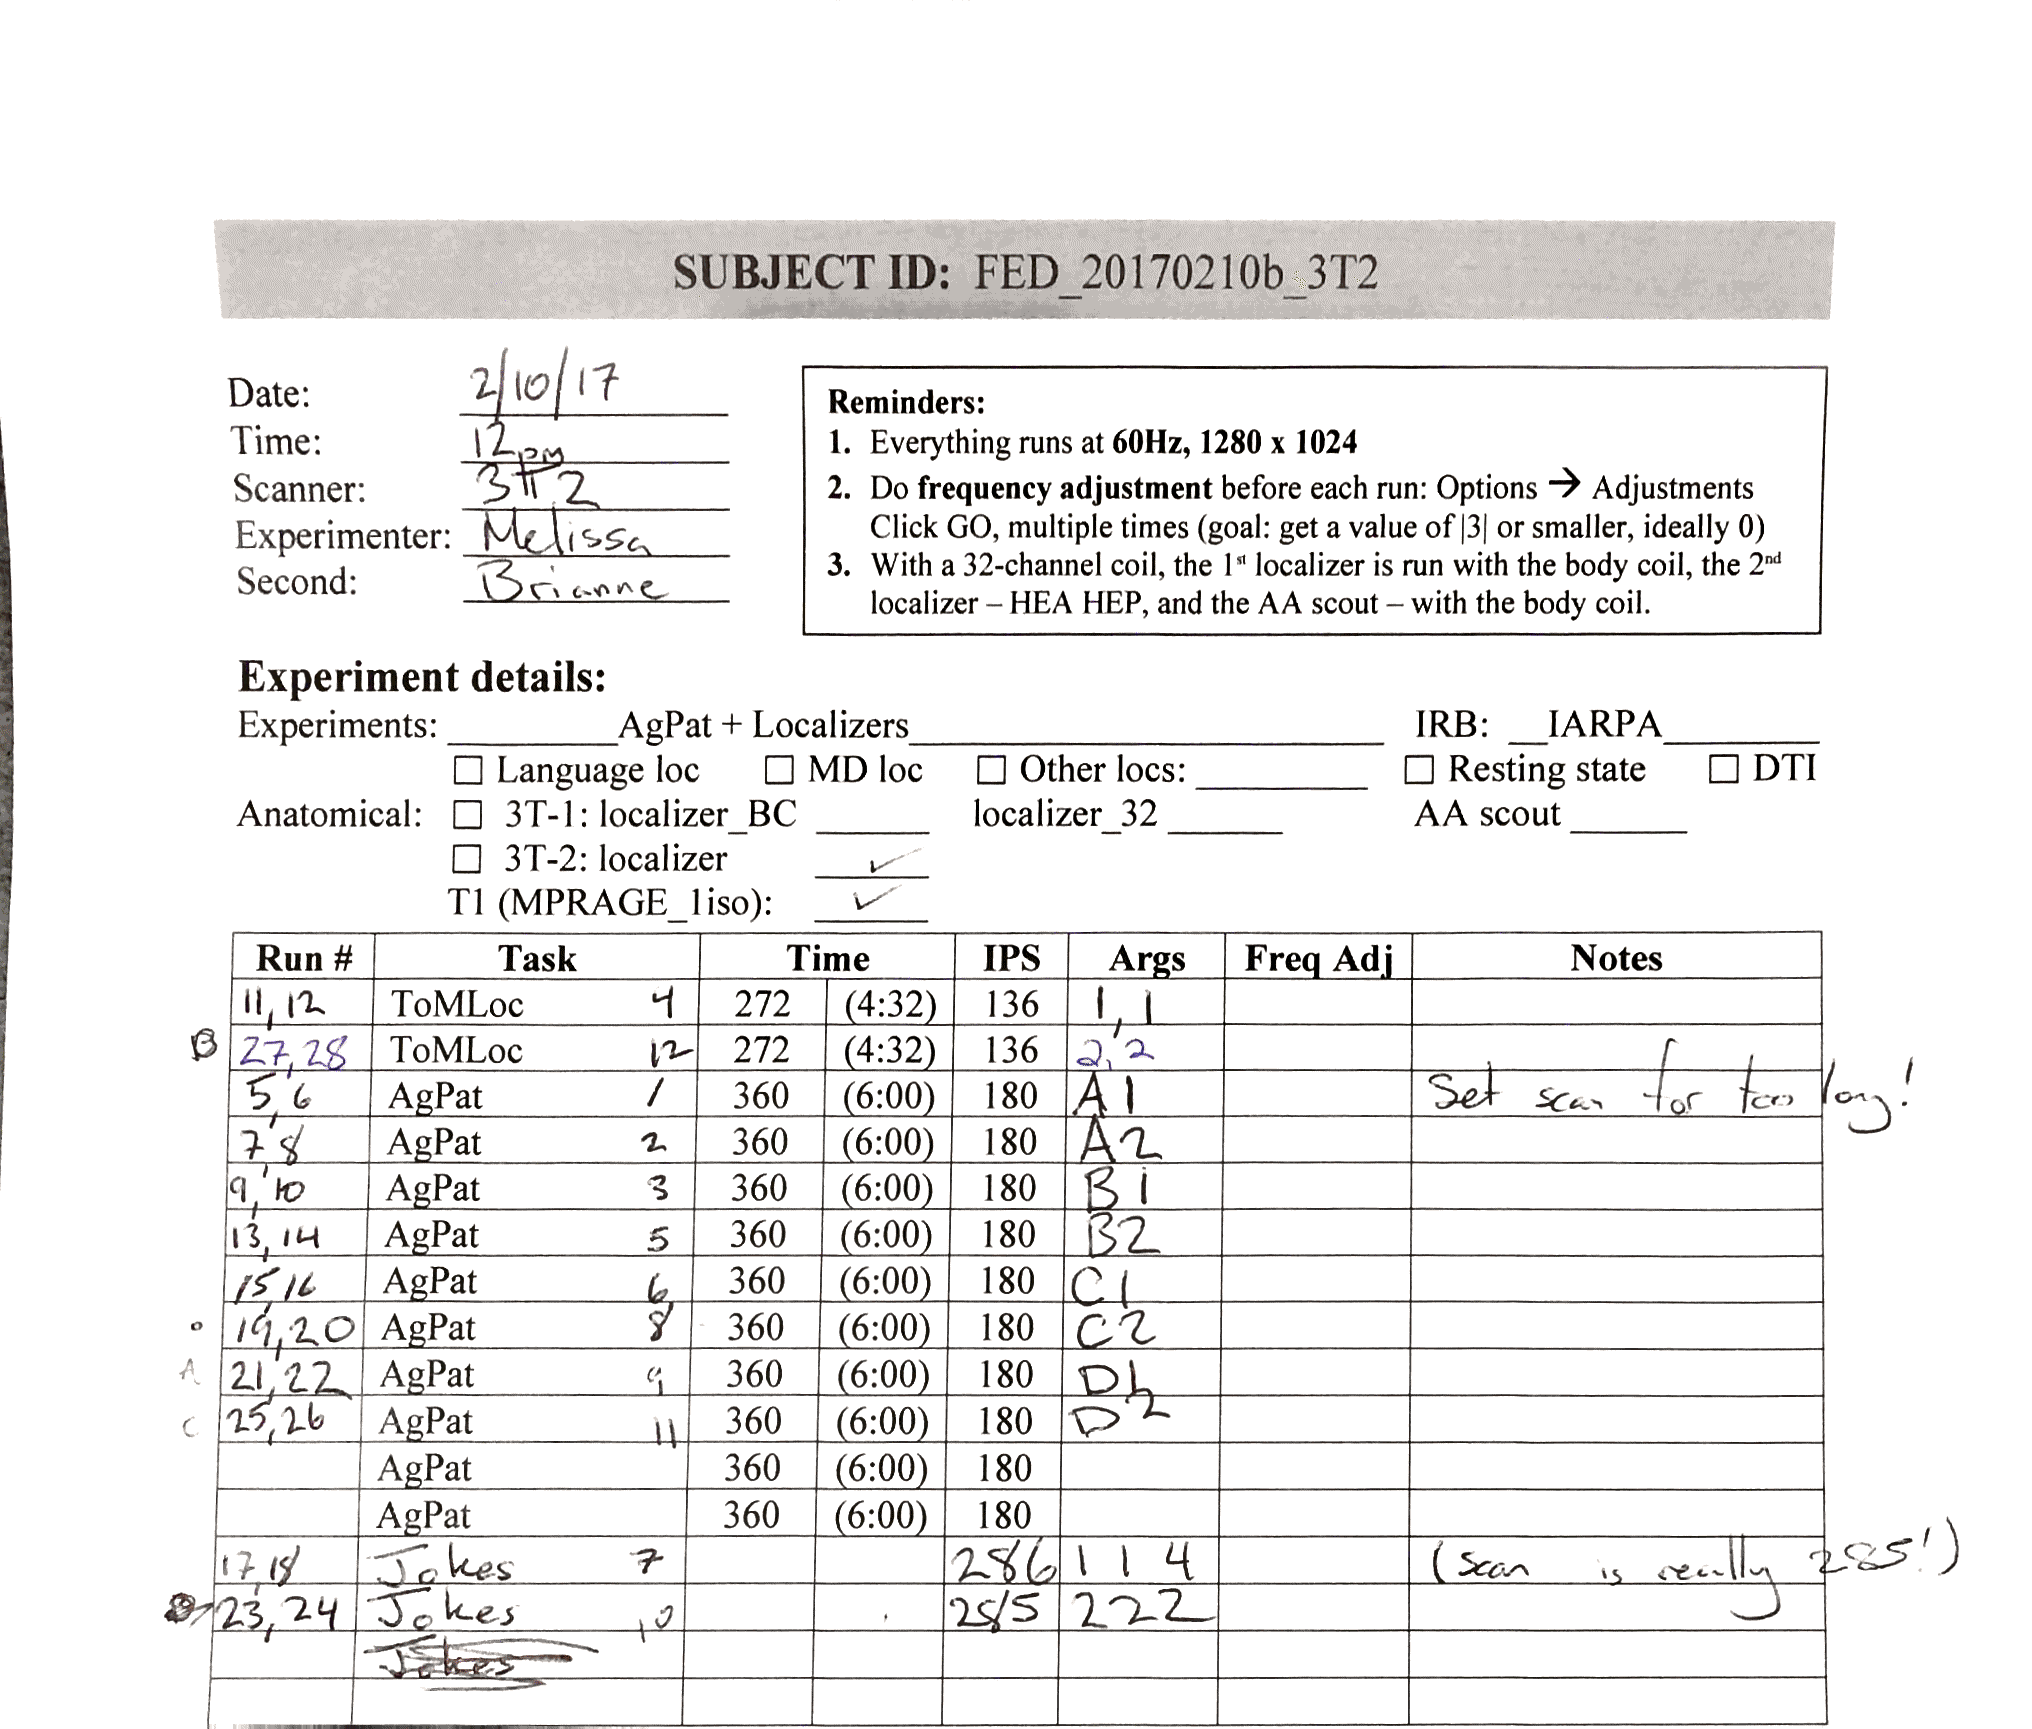 SUBJECT ID: FED_20170210b_3T2
Date: 2/10/17
Time: 12pm
Scanner: 3T 2
Experimenter: Melissa
Second: Brianne
Reminders:
1. Everything runs at 60Hz, 1280 x 1024
2. Do frequency adjustment before each run: Options → Adjustments
Click GO, multiple times (goal: get a value of |3| or smaller, ideally 0)
3. With a 32-channel coil, the 1st localizer is run with the body coil, the 2nd
localizer – HEA HEP, and the AA scout – with the body coil.
Experiment details:
Experiments: ______AgPat + Localizers______ IRB: __IARPA______
☐ Language loc ☐ MD loc ☐ Other locs: ______ ☐ Resting state ☐ DTI
Anatomical: ☐ 3T-1: localizer_BC ______ localizer_32 ______ AA scout ______
☐ 3T-2: localizer ✓
T1 (MPRAGE_1iso): ✓
Run # Task Time IPS Args Freq Adj Notes
11,12 ToMLoc 4 272 (4:32) 136 1,1
B 27,28 ToMLoc 12 272 (4:32) 136 2,2
5,6 AgPat 1 360 (6:00) 180 A1 Set scan for too long!
7,8 AgPat 2 360 (6:00) 180 A2
9,10 AgPat 3 360 (6:00) 180 B1
13,14 AgPat 5 360 (6:00) 180 B2
15,16 AgPat 6 360 (6:00) 180 C1
19,20 AgPat 8 360 (6:00) 180 C2
A 21,22 AgPat 9 360 (6:00) 180 D1
C 25,26 AgPat 11 360 (6:00) 180 D2
AgPat 360 (6:00) 180
AgPat 360 (6:00) 180
17,18 Jokes 7 286 1 1 4 (scan is really 285!)
23,24 Jokes 10 285 2 2 2
Jokes